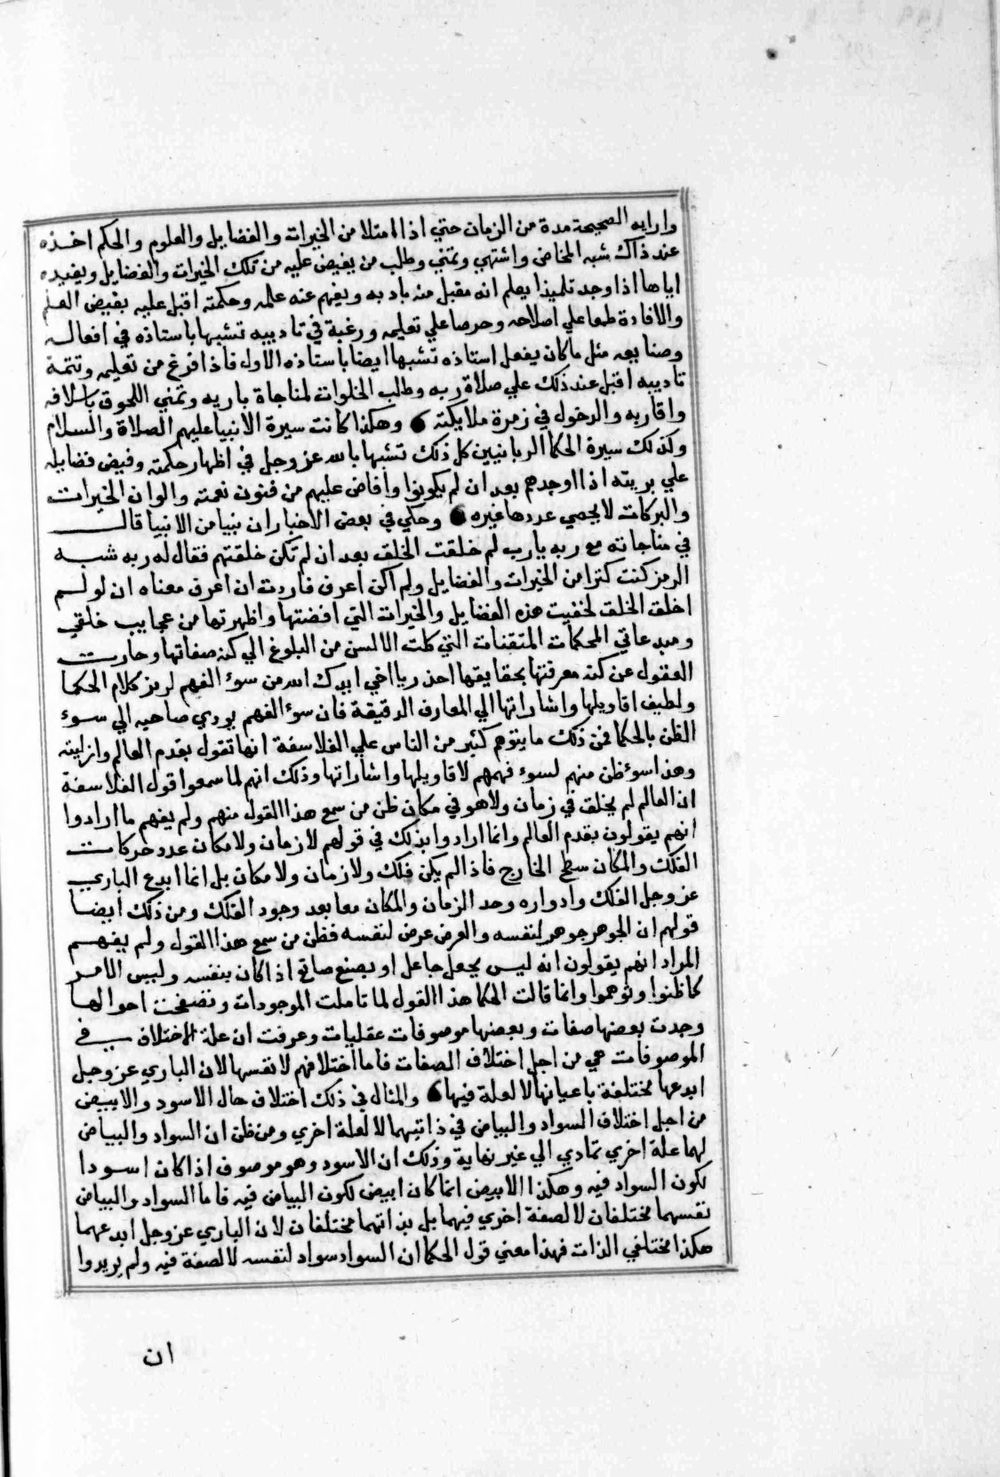 وارايه الصحيحة مدة من الزمان حتي اذا امتلا من الخيرات والفضايل والعلوم والحكم اخذه
عند ذاك شبه المخاض واشتهي وتمني وطلب من يفيض عليه من تلك الخيرات والفضايل ويفيده
اياها اذا وجد تلميذا يعلم انه مقبل منه بادبه ويفهم عنه علمه وحكمته اقبل عليه بفيض العلم
والافادة طمعا علي اصلاحه وحرصا علي تعليمه ورغبة في تاديبه تشبها باستاذه في افعاله
وصنايعه مثل ما كان يفعل استاذه تشبها ايضا باستاذه الاول فاذا فرغ من تعليمه وتتمة
تاديبه اقبل عند ذلك علي صلاة ربه وطلب الخلوات لمناجاة باريه وتمني اللحوق باسلافه
واقاربه والدخول في زمرة ملايكته وهكذا كانت سيرة الانبيا عليهم الصلاة والسلام
وكذلك سيرة الحكما الربانيين كل ذلك تشبها بالله عز وجل في اظهار حكمته وفيض فضايله
علي بريته اذا اوجدهم بعد ان لم يكونوا وافاض عليهم من فنون نعمته والوان الخيرات
والبركات لا يحصي عددها غيره وحكي في بعض الاخبار ان نبيا من الانبيا قال
في مناجاته مع ربه يا رب لم خلقت الخلق بعد ان لم تكن خلقتهم فقال له ربه شبه
الرمز كنت كنزا من الخيرات والفضايل ولم اكن اعرف فاردت ان اعرف معناه ان لو لم
اخلق الخلق لخفيت هذه الفضايل والخيرات التي افضتها واظهرتها من عجايب خلقي
ومبدعاتي المحكمات المتقنات التي كلت الالسن من البلوغ الي كنه صفاتها وحارت
العقول عن كنه معرفتها بحقايقها احذر يا اخي ايدك الله من سوء الفهم لرمز كلام الحكما
ولطيف اقاويلها واشاراتها الي المعارف الدقيقة فان سوء الفهم يودي صاحبه الي سوء
الظن بالحكما فمن ذلك ما يتوهم كثير من الناس علي الفلاسفة انها تقول بقدم العالم وازليته
وهذا سوء ظن منهم لسوء فهمهم لاقاويلها واشاراتها وذلك انهم لما سمعوا قول الفلاسفة
ان العالم لم يخلق في زمان ولا هو في مكان ظن من سمع هذا القول منهم ولم يفهم ما ارادوا
انهم يقولون بقدم العالم وانما ارادوا بذلك في قولهم لا زمان ولا مكان عدد حركات
الفلك والمكان سطح الخارج فاذا لم يكن فلك ولا زمان ولا مكان بل انما ابدع الباري
عز وجل الفلك وادواره وحد الزمان والمكان معا بعد وجود الفلك ومن ذلك ايضا
قولهم ان الجوهر جوهر لنفسه والعرض عرض لنفسه فظن من سمع هذا القول ولم يفهم
المراد انهم يقولون انه ليس بجعل جاعل او بصنع صانع اذا كان بنفسه وليس الامر
كما ظنوا وتوهموا وانما قالت الحكما هذا القول لما تاملت الموجودات وتصفحت احوالها
وجدت بعضها صفات وبعضها موصوفات عقليات وعرفت ان علة الاختلاف في
الموصوفات هي من اجل اختلاف الصفات فاما اختلافهم لانفسها لان الباري عز وجل
ابدعها مختلفة باعيانها لا لعلة فيها والمثال في ذلك اختلاف حال الاسود والابيض
من اجل اختلاف السواد والبياض في ذاتيهما لا لعلة اخري ومن ظن ان السواد والبياض
لهما علة اخري تمادي الي غير نهاية وذلك ان الاسود وهو موصوف اذا كان اسودا
لكون السواد فيه وهكذا الابيض انما كان ابيض لكون البياض فيه فاما السواد والبياض
نفسهما مختلفان لا لصفة اخري فيهما بل بذاتهما مختلفان لان الباري عز وجل ابدعهما
هكذا مختلفي الذات فهذا معني قول الحكما ان السواد سواد لنفسه لا لصفة فيه ولم يريدوا
ان